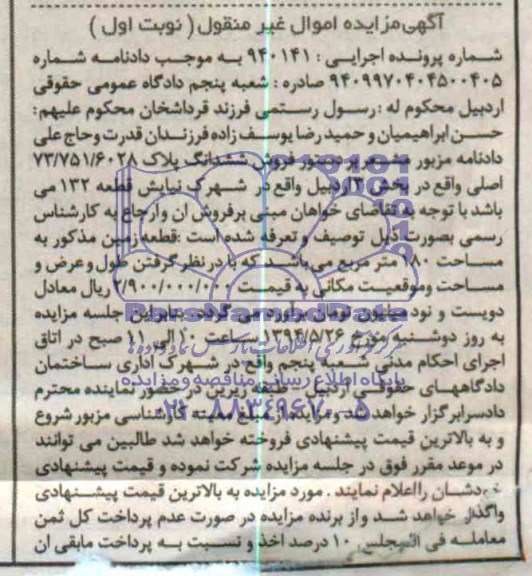 آگهی مزایده اموال غیر منقول ( نوبت اول )
شماره پرونده اجرایی : ۹۴۰۱۴۱ به موجب دادنامه شماره
۹۴۰۹۹۷۰۴۰۴۵۰۰۴۰۵ صادره : شعبه پنجم دادگاه عمومی حقوقی
اردبیل محکوم له : رسول رستمی فرزند قرداشخان محکوم علیهم :
حسن ابراهیمیان و حمید رضا یوسف زاده فرزندان قدرت و حاج علی
دادنامه مزبور مشعر به دستور فروش ششدانگ پلاک ۷۳/۷۵۱/۶۰۲۸
اصلی واقع در بخش ۳ اردبیل واقع در شهرک نیایش قطعه ۱۳۲ می
باشد با توجه به تقاضای خواهان مبنی برفروش ان و ارجاع به کارشناس
رسمی بصورت ذیل توصیف و تعرفه شده است :قطعه زمین مذکور به
مساحت ۱۸۰ متر مربع می باشد که با در نظر گرفتن طول و عرض و
مساحت وموقعیت مکانی به قیمت ۲/۹۰۰/۰۰۰/۰۰۰ ریال معادل
دویست و نود میلیون تومان برآورد می گردد. بنابراین جلسه مزایده
به روز دوشنبه مورخ ۱۳۹۴/۵/۲۶ ساعت ۱۰ الی ۱۱ صبح در اتاق
اجرای احکام مدنی شعبه پنجم واقع در شهرک اداری ساختمان
دادگاههای حقوقی اردبیل طبقه زیرین در حضور نماینده محترم
دادسرا برگزار خواهد شد ومزایده از مبلغ معینه کارشناسی مزبور شروع
و به بالاترین قیمت پیشنهادی فروخته خواهد شد طالبین می توانند
در موعد مقرر فوق در جلسه مزایده شرکت نموده و قیمت پیشنهادی
خودشان رااعلام نمایند . مورد مزایده به بالاترین قیمت پیشنهادی
واگذار خواهد شد و از برنده مزایده در صورت عدم پرداخت کل ثمن
معامله فی المجلس ۱۰ درصد اخذ و نسبت به پرداخت مابقی ان
ParsNamadData
پایگاه اطلاع رسانی مناقصه و مزایده
۰۲۱-۸۸۳۴۹۶۷۰-۵